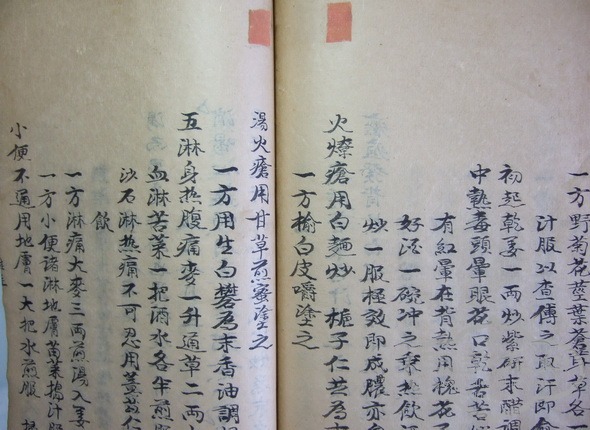 一方野菊花莖葉蒼耳草各一
汁服以查傅之取汗即
初起乾姜一兩炒紫研末醋調
中熱毒頭暈眼花口乾舌苦
有紅暈在背熱用槐花
好酒一碗冲之乘熱飲
炒一服極效即成膿亦
火燎瘡用白麵炒梔子仁共為
一方榆白皮嚼塗之
湯火瘡用甘草煎蜜塗之
一方用生白礬為末香油調
五淋身热腹痛麥一升通草二兩
血淋苦菜一把酒水各半煎
沙石淋热痛不可忍用
飲
一方淋痛大麥三兩煎湯入姜
一方小便諸淋地膚苗菜搗汁
小便不通用地膚一大把水煎服